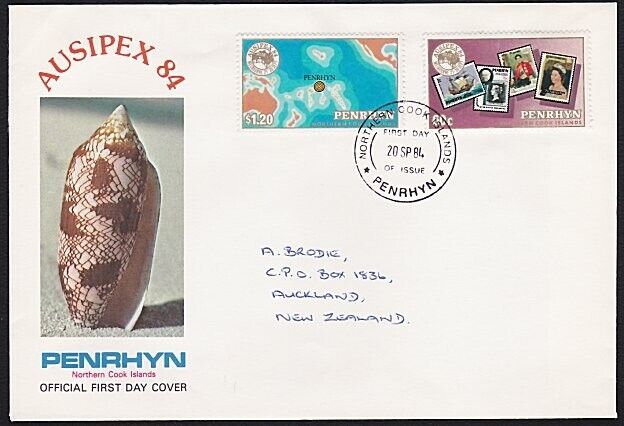 AUSIPEX 84
AUSIPEX
PENRHYN
$1.20
PENRHYN
NORTHERN COOK ISLANDS
AUSIPEX
PENRHYN
COOK ISLANDS
NORTHERN COOK ISLANDS
FIRST DAY
20 SP 84
OF ISSUE
★ PENRHYN ★
A. BRODIE,
C.P.O. BOX 1836,
AUCKLAND,
NEW ZEALAND.
PENRHYN
Northern Cook Islands
OFFICIAL FIRST DAY COVER